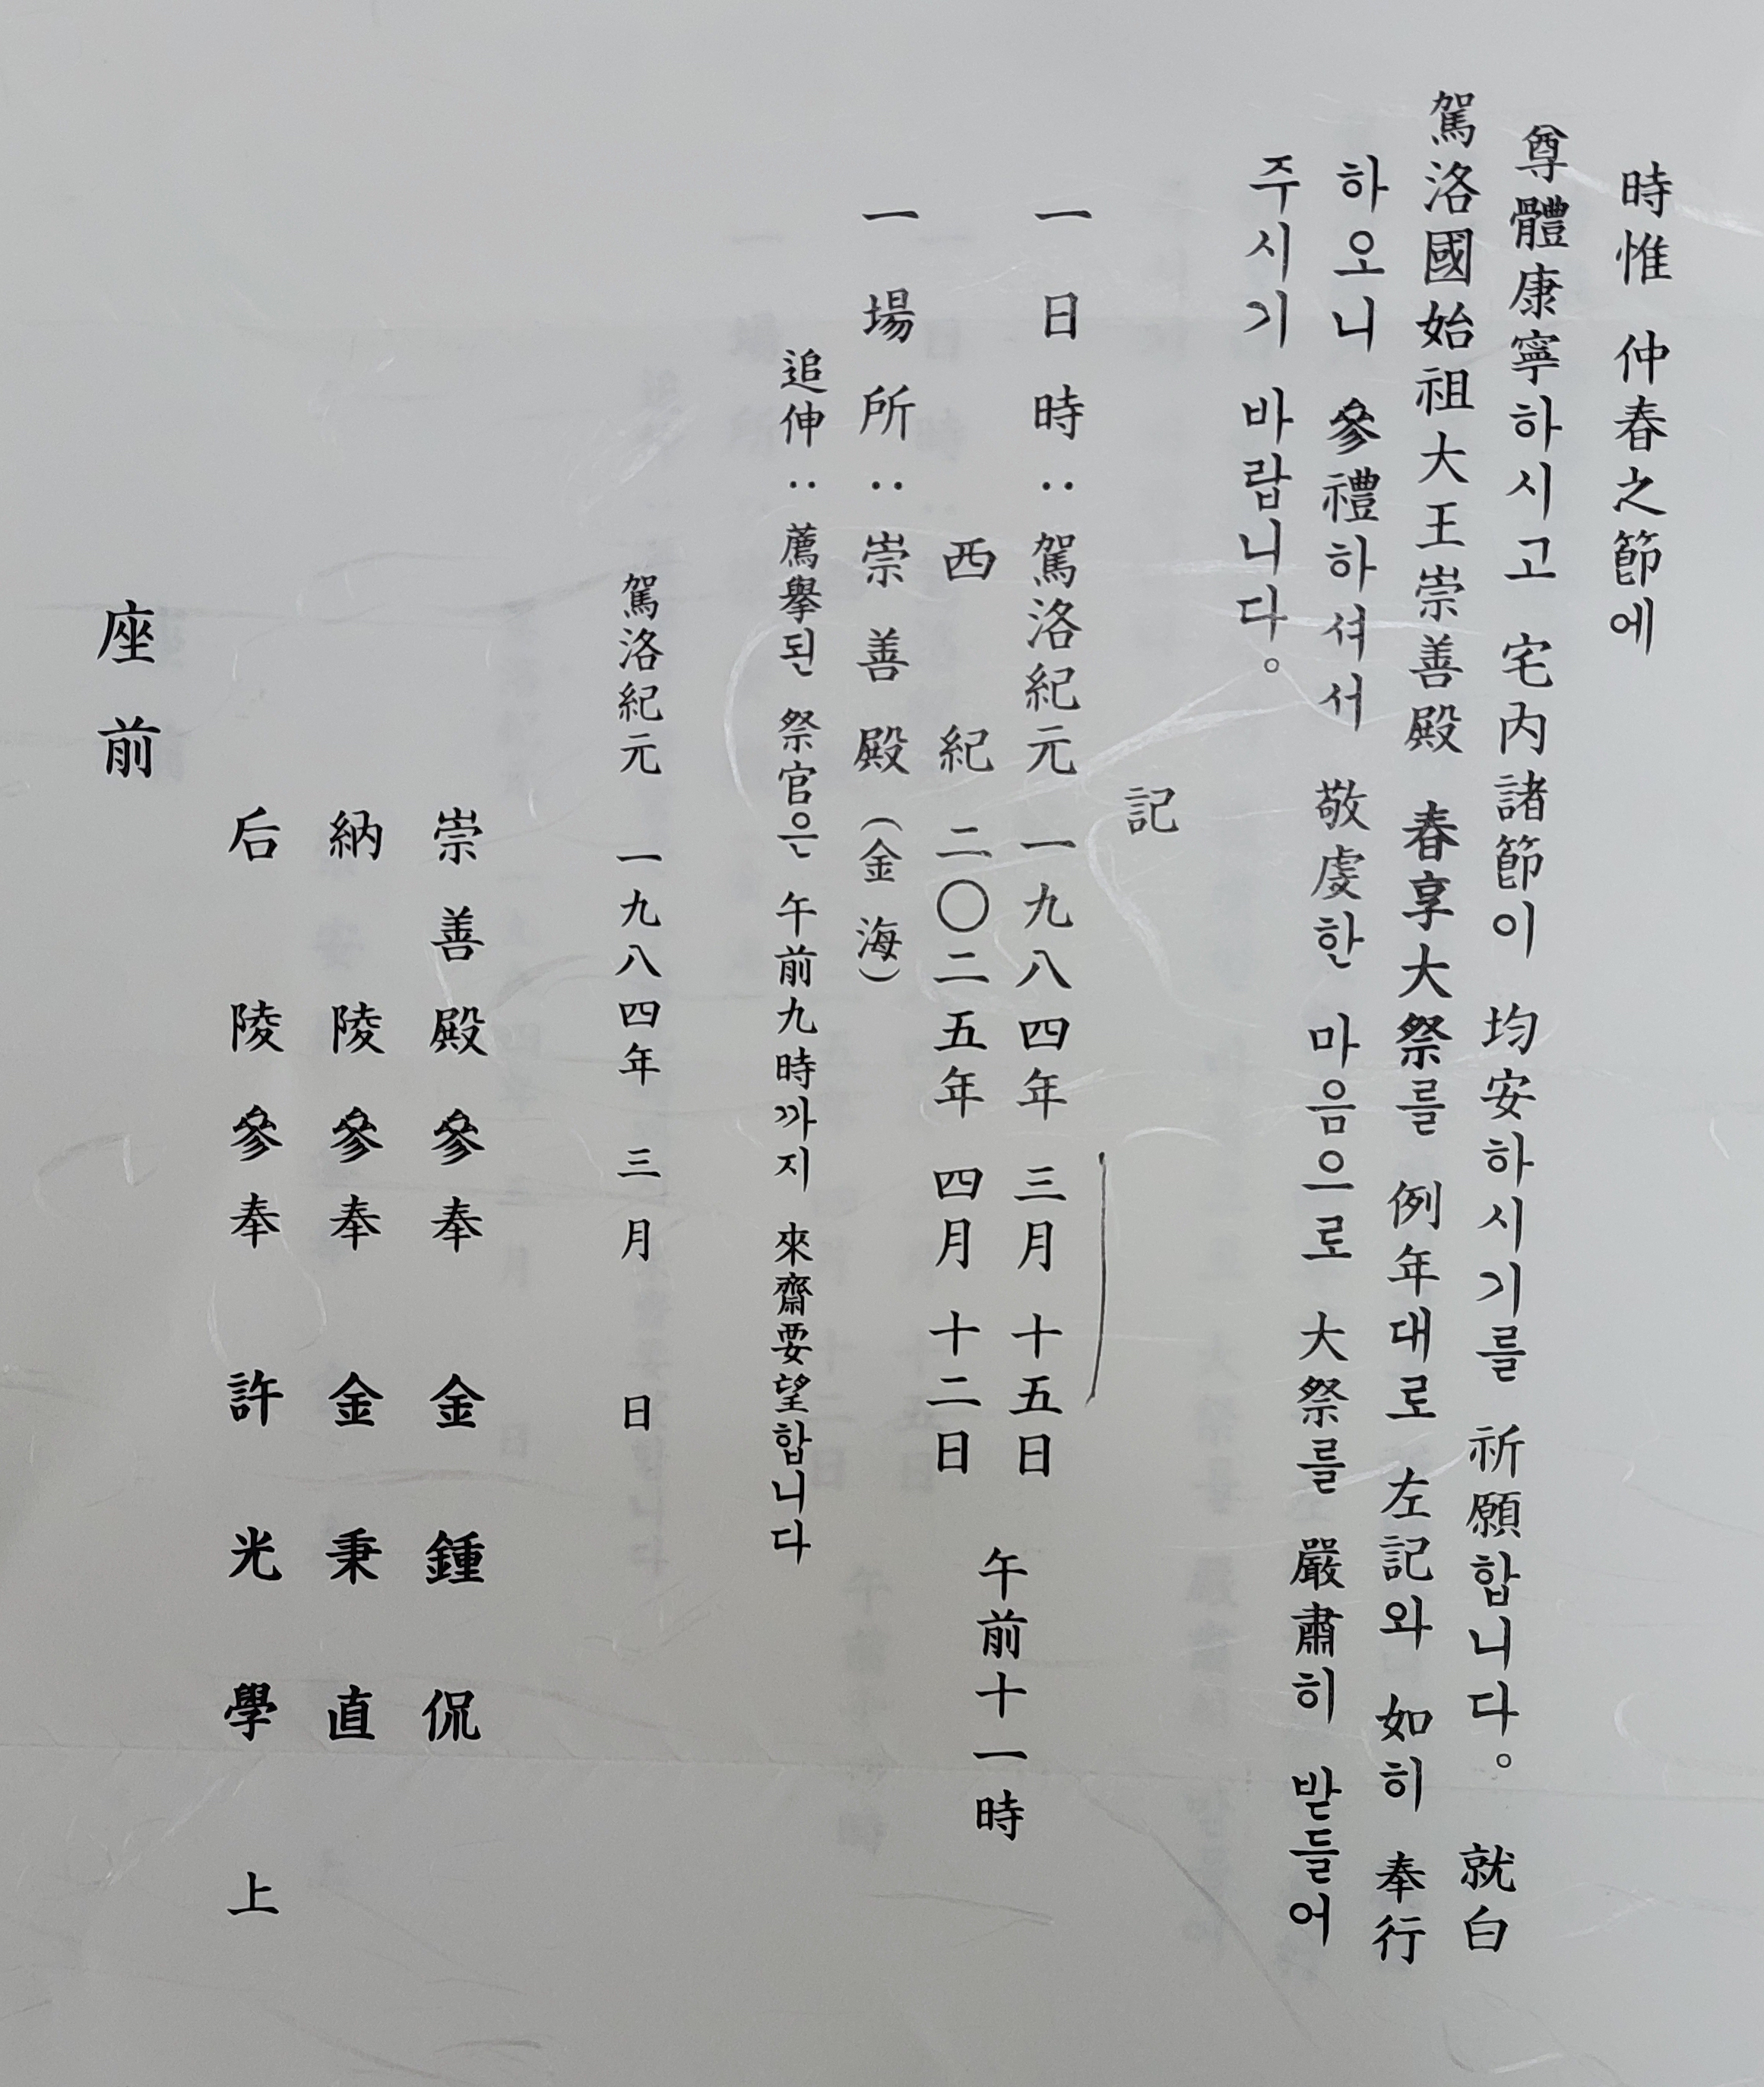 時惟 仲春之節에
尊體康寧하시고 宅內諸節이 均安하시기를 祈願합니다。 就白
駕洛國始祖大王崇善殿 春享大祭를 例年대로 左記와 如히 奉行
하오니 參禮하셔서 敬虔한 마음으로 大祭를 嚴肅히 받들어
주시기 바랍니다。
記
一 日 時 : 駕洛紀元 一九八四年 三月 十五日
西 紀 二〇二五年 四月 十二日
午前十一時
一 場 所 : 崇 善 殿 (金 海)
追伸 : 薦擧된 祭官은 午前九時까지 來齋要望합니다
駕洛紀元 一九八四年 三月 日
崇 善 殿 參 奉 金 鍾 侃
納 陵 參 奉 金 秉 直
后 陵 參 奉 許 光 學 上
座 前